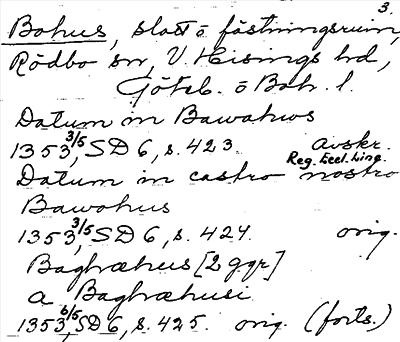 3.
Bohus, slott o fästningsruin,
Rödbo sn, V. Hisings hd,
Göteb. o Boh. l.
Datum in Bawahws
1353 3/5, SD 6, s. 423. avskr.
Reg. Eccl. Ling.
Datum in castro nostro
Bawohus
1353 3/5, SD 6, s. 424. orig.
Baghæhus [2 ggr]
a Baghæhusi
1353 6/5, SD 6, s. 425. orig. (forts.)